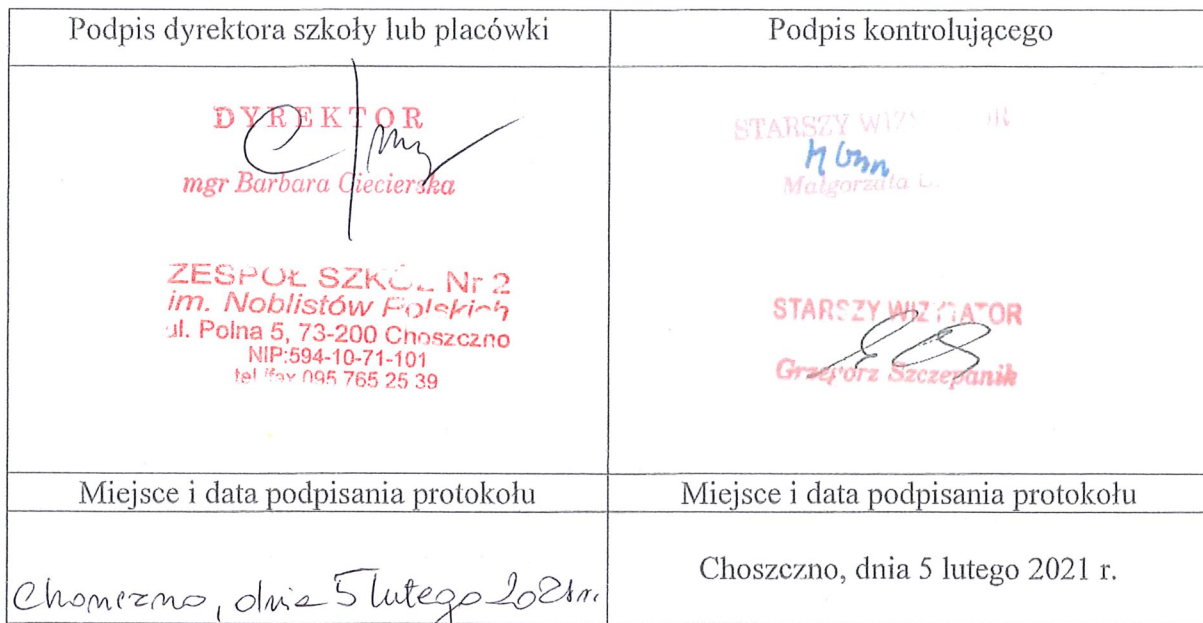 Podpis dyrektora szkoły lub placówki
Podpis kontrolującego
DYREKTOR
mgr Barbara Ciecierska
ZESPÓŁ SZKÓŁ Nr 2
im. Noblistów Polskich
ul. Polna 5, 73-200 Choszczno
NIP:594-10-71-101
tel./fax 095 765 25 39
STARSZY WIZYTATOR
Małgorzata
STARSZY WIZYTATOR
Grzegorz Szczepanik
Miejsce i data podpisania protokołu
Miejsce i data podpisania protokołu
Choszczno, dnia 5 lutego 2021r.
Choszczno, dnia 5 lutego 2021 r.